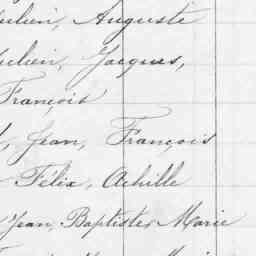 Julien, Auguste
Julien, Jacques,
François
Jean, François
Félix, Achille
Jean, Baptiste, Marie